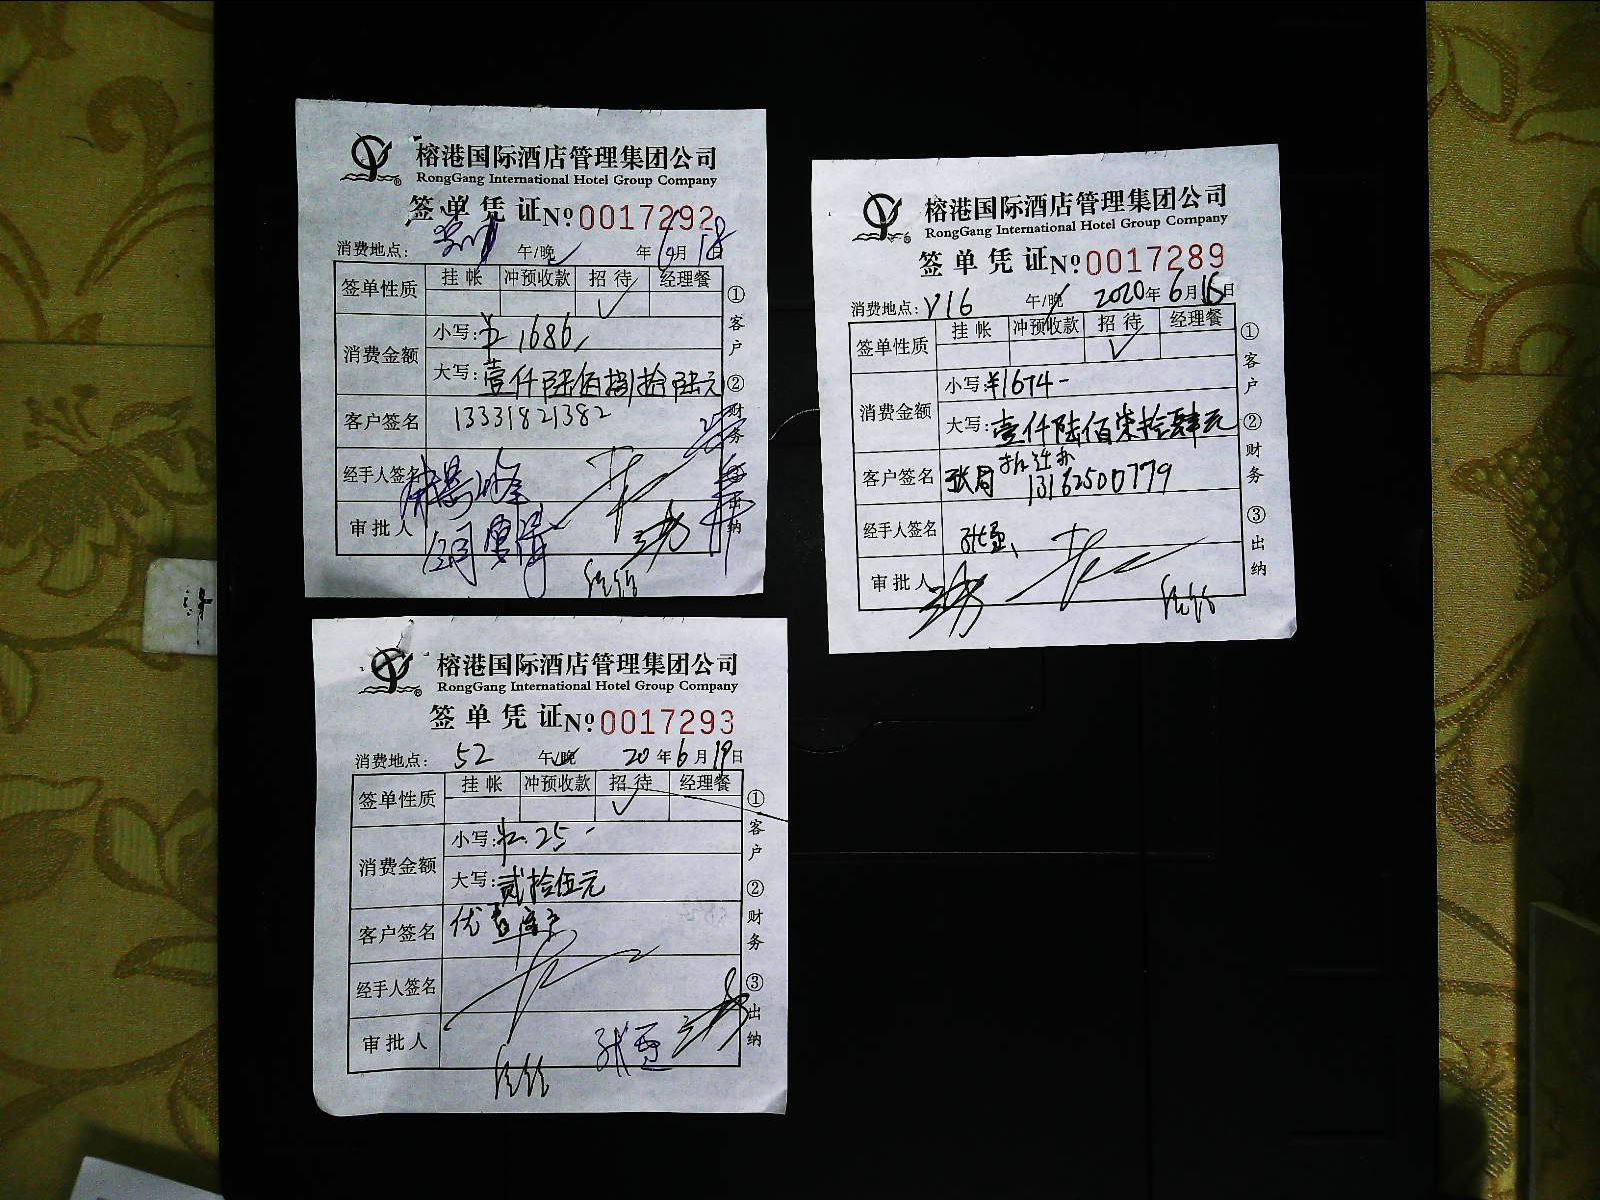 榕港国际酒店管理集团公司
RongGang International Hotel Group Company
签单凭证 №0017292
消费地点: 午/晚 年6月18日
签单性质 挂帐 冲预收款 招待 经理餐
✓
消费金额 小写:¥1686
大写:壹仟陆佰捌拾陆元
客户签名 13331821382
经手人签名
审批人
①客户 ②财务 出纳
榕港国际酒店管理集团公司
RongGang International Hotel Group Company
签单凭证 №0017289
消费地点: V16 午/晚 2020年6月15日
签单性质 挂帐 冲预收款 招待 经理餐
✓
消费金额 小写:¥1674-
大写:壹仟陆佰柒拾肆元
客户签名 张局 拆迁办
13162500779
经手人签名 张亚
审批人
①客户 ②财务 ③出纳
榕港国际酒店管理集团公司
RongGang International Hotel Group Company
签单凭证 №0017293
消费地点: 52 午/晚 20年6月19日
签单性质 挂帐 冲预收款 招待 经理餐
✓
消费金额 小写:¥25-
大写:贰拾伍元
客户签名
经手人签名
审批人 张亚
①客户 ②财务 ③出纳